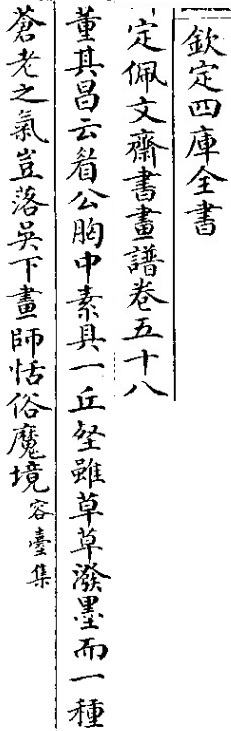 欽定四庫全書
定佩文齋書畫譜卷五十八
董其昌云眉公胸中素具一丘壑雖草草潑墨而一種
蒼老之氣豈落吳下畫師恬俗魔境容臺集